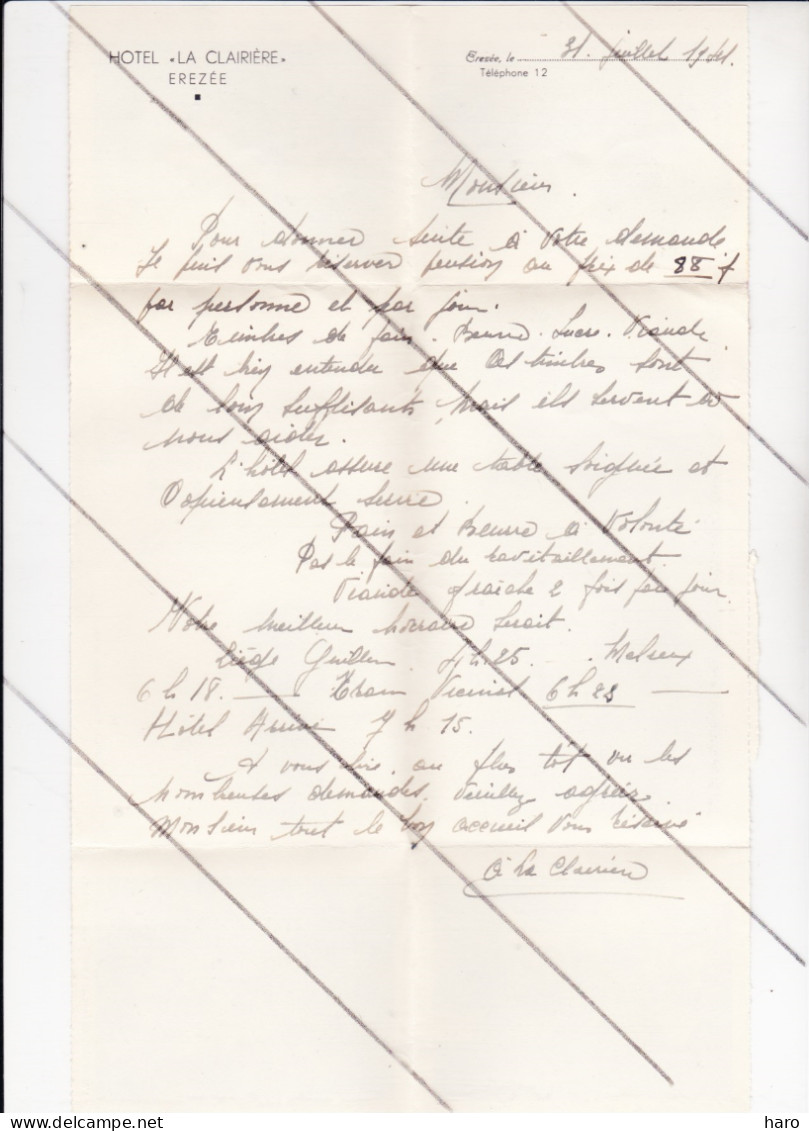 HOTEL «LA CLAIRIÈRE»
EREZÉE
Erezée, le 31 juillet 1941.
Téléphone 12
Monsieur.
Pour donner suite à votre demande
Je puis vous réserver pension au prix de 88 f
par personne et par jour.
Timbres de pain. Beurre. Sucre. Viande.
Il est bien entendu que ces timbres sont
de loin suffisants, mais ils servent à
nous aider.
L'hôtel assure une table soignée et
copieusement servie.
Pain et Beurre à volonté
Pas le pain du ravitaillement.
Viande fraîche 2 fois par jour.
Votre meilleur horraire serait.
Liège Guillem. 4 h 25 - Melreux
6 h 18. — Tram Vicinal 6 h 28 —
Hôtel Arrivé 7 h 15.
A vous lire, au plus tôt vu les
nombreuses demandes, Veuillez agréer
Monsieur tout le bon accueil vous réservé
à La Clairière
haro